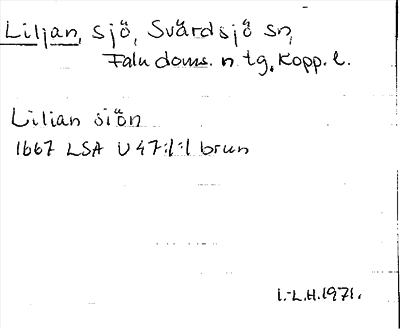 Liljan, sjö, Svärdsjö sn,
Falu doms. n tg. Kopp. l.
Lilian siön
1667 LSA U 47:1:1 brun
I.-L.H. 1971.